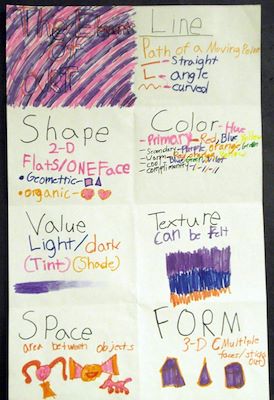 The Elements
OF
ART
Line
Path of a Moving Point
Straight
angle
curved
Shape
2-D
Flats/ONE Face
• Geometric-
• organic-
Color - Hue
- Primary - Red, Blue, Yellow
- Secondary - Purple, orange, Green
- Warm - Red, orange, Yellow
- cool - Blue, Green, Violet
Value
Light/dark
(Tint) (Shade)
Texture
Can be felt
SPace
area between objects
FORM
3-D (Multiple
faces/sticks
out)